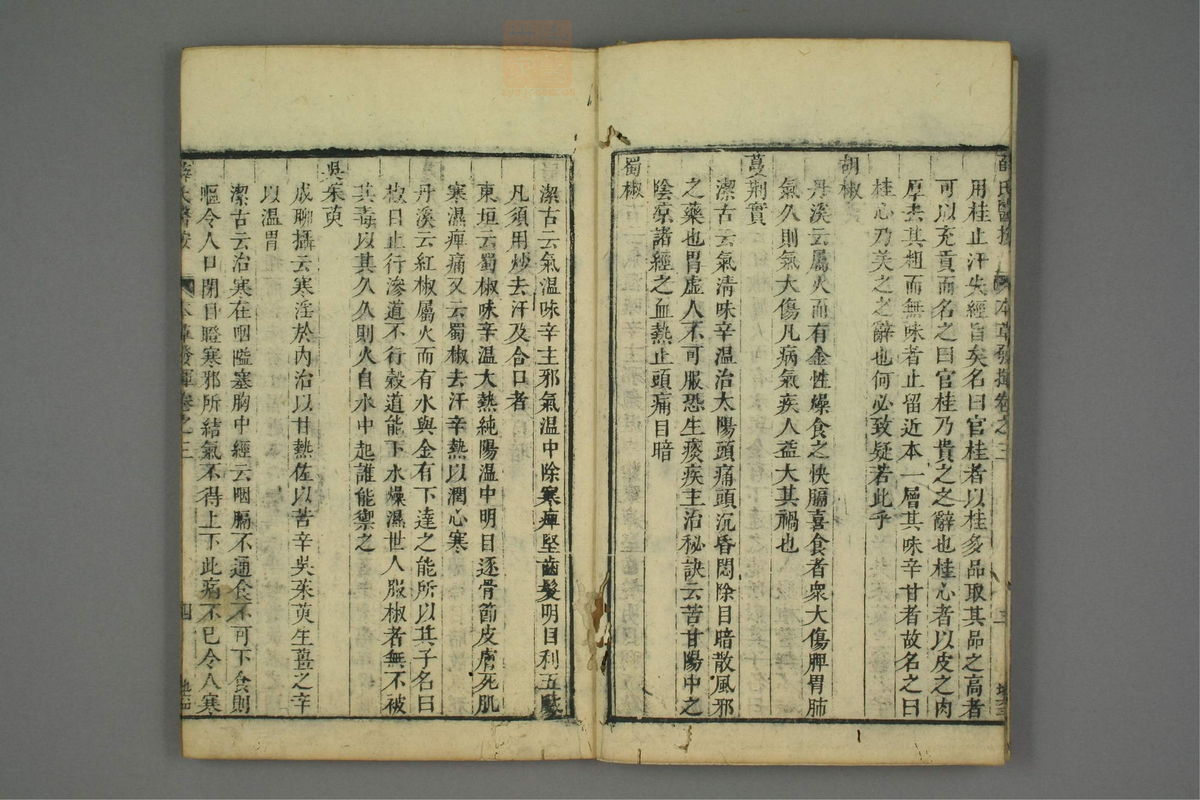 薛氏醫按 本草發揮卷之三
用桂止汗失經旨矣名曰官桂者以桂多品取其品之高者
可以充貢而名之曰官桂乃貴之之辭也桂心者以皮之肉
厚去其粗而無味者止留近木一層其味辛甘者故名之曰
桂心乃美之之辭也何必致疑若此乎
胡椒
丹溪云屬火而有金性燥食之快膈喜食者衆大傷脾胃肺
氣久則氣大傷凡病氣疾人益大其禍也
蔓荆實
潔古云氣清味辛温治太陽頭痛頭沉昏悶除目暗散風邪
之藥也胃虚人不可服恐生痰疾主治秘訣云苦甘陽中之
陰凉諸經之血熱止頭痛目暗
蜀椒
潔古云氣温味辛主邪氣温中除寒痺堅齒髮明目利五臟
凡須用炒去汗及合口者
東垣云蜀椒味辛温大熱純陽温中明目逐骨節皮膚死肌
寒濕痺痛又云蜀椒去汗辛熱以潤心寒
丹溪云紅椒屬火而有水與金有下達之能所以其子名曰
椒目止行滲道不行穀道能下水燥濕世人服椒者無不被
其毒以其久久則火自水中起誰能禦之
吳茱萸
成聊攝云寒淫於内治以甘熱佐以苦辛吳茱萸生薑之辛
以温胃
潔古云治寒在咽嗌塞胸中經云咽膈不通食不可下食則
嘔令人口開目瞪寒邪所結氣不得上下此病不已令人寒
薛氏醫按 本草發揮卷之三 四